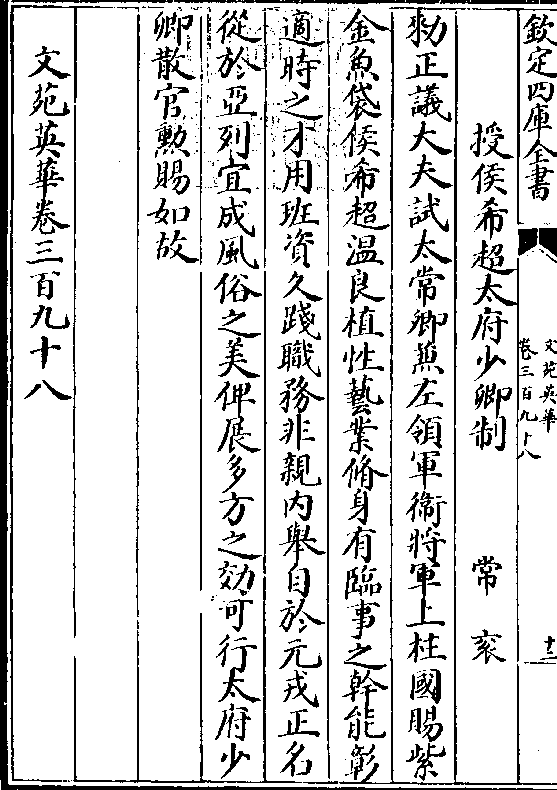 欽定四庫全書
文苑英華
卷三百九十八
十三
授侯希超太府少卿制　常衮
勑正議大夫試太常卿兼左領軍衞將軍上柱國賜紫
金魚袋侯希超温良植性藝業脩身有臨事之幹能彰
適時之才用班資久踐職務非親内舉自於元戎正名
從於亞列宜成風俗之美俾展多方之効可行太府少
卿散官勲賜如故
文苑英華卷三百九十八